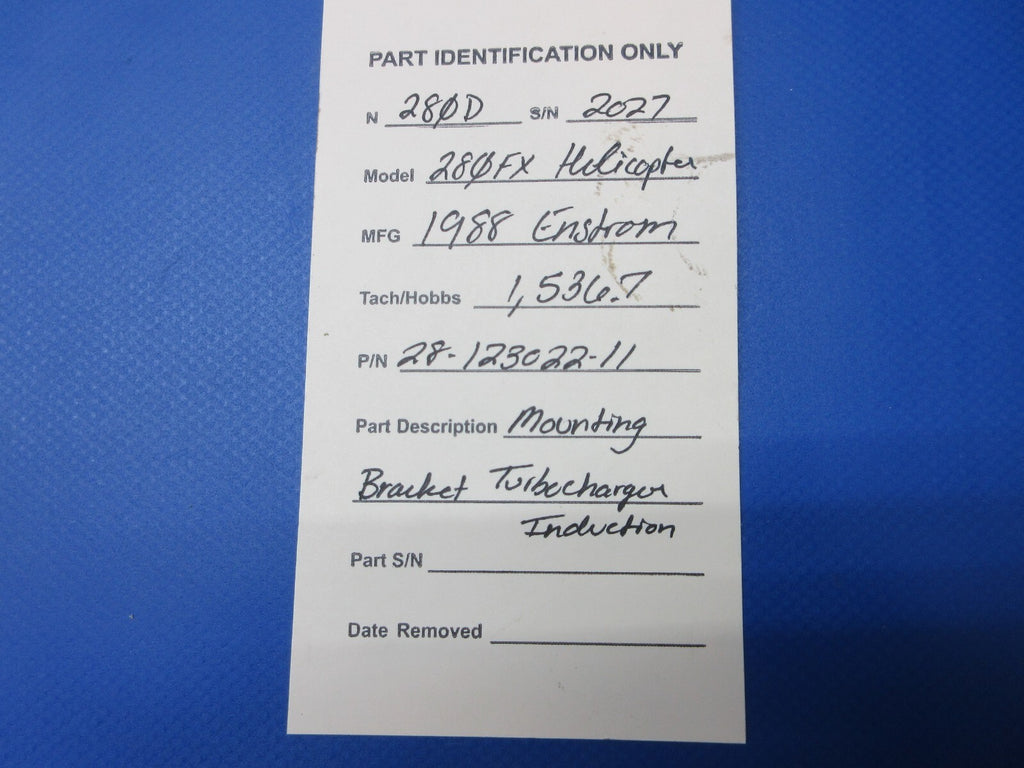 PART IDENTIFICATION ONLY
N 280D S/N 2027
Model 280FX Helicopter
MFG 1988 Enstrom
Tach/Hobbs 1,536.7
P/N 28-123022-11
Part Description Mounting
Bracket Turbocharger
Induction
Part S/N
Date Removed